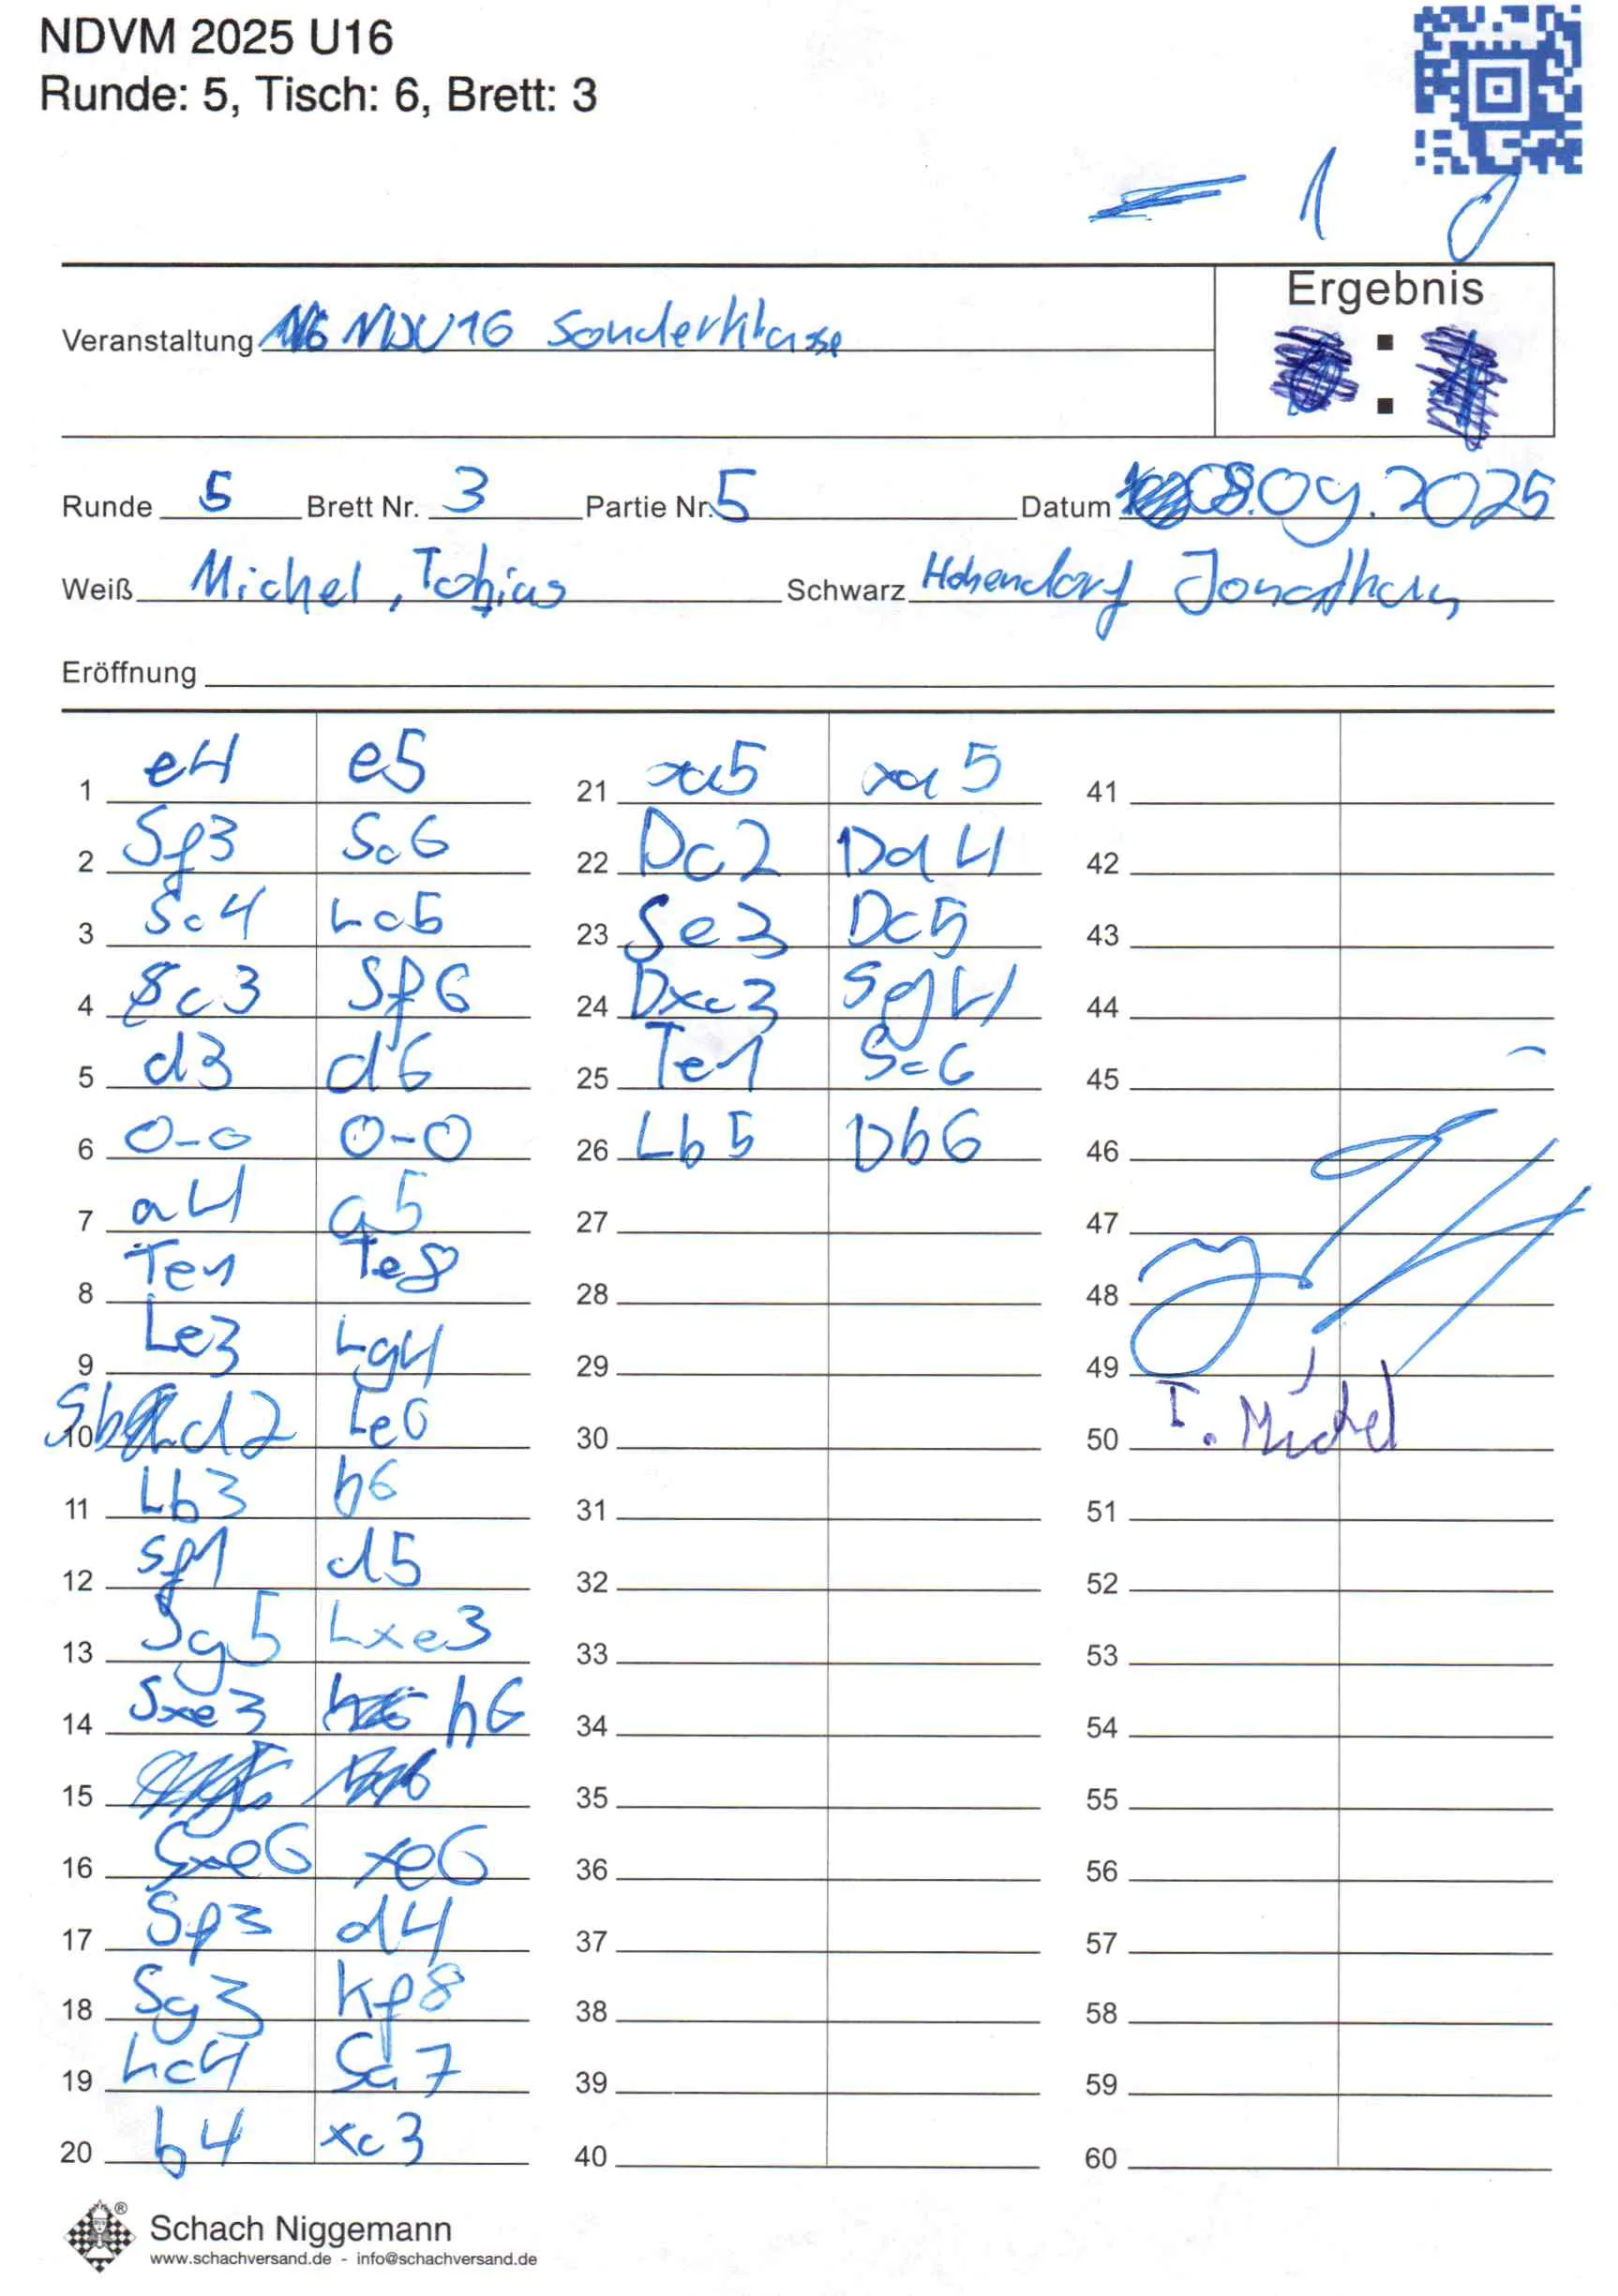 NDVM 2025 U16
Runde: 5, Tisch: 6, Brett: 3
= 1 0
Ergebnis
Veranstaltung NDVU16 Sonderklasse
:
Runde 5 Brett Nr. 3 Partie Nr. 5 Datum 08.09.2025
Weiß Michel, Tobias Schwarz Hohendorf Jonathan
Eröffnung
1 e4 e5 21 xa5 xa5 41
2 Sf3 Sc6 22 Dc2 Dd4 42
3 Sc4 Lc5 23 Se3 Dc5 43
4 c3 Sf6 24 Dxc3 Sg4 44
5 d3 d6 25 Te1 Sc6 45
6 0-0 0-0 26 Lb5 Db6 46
7 a4 a5 27 47
8 Te1 Te8 28 48
9 Le3 Lg4 29 49
10 Sbd2 Le6 30 50 T. Michel
11 Lb3 b6 31 51
12 Sf1 d5 32 52
13 Sg5 Lxe3 33 53
14 Sxe3 h6 34 54
15 35 55
16 Sxe6 xe6 36 56
17 Sf3 d4 37 57
18 Sg3 Kf8 38 58
19 Lc4 Sa7 39 59
20 b4 xc3 40 60
Schach Niggemann
www.schachversand.de - info@schachversand.de